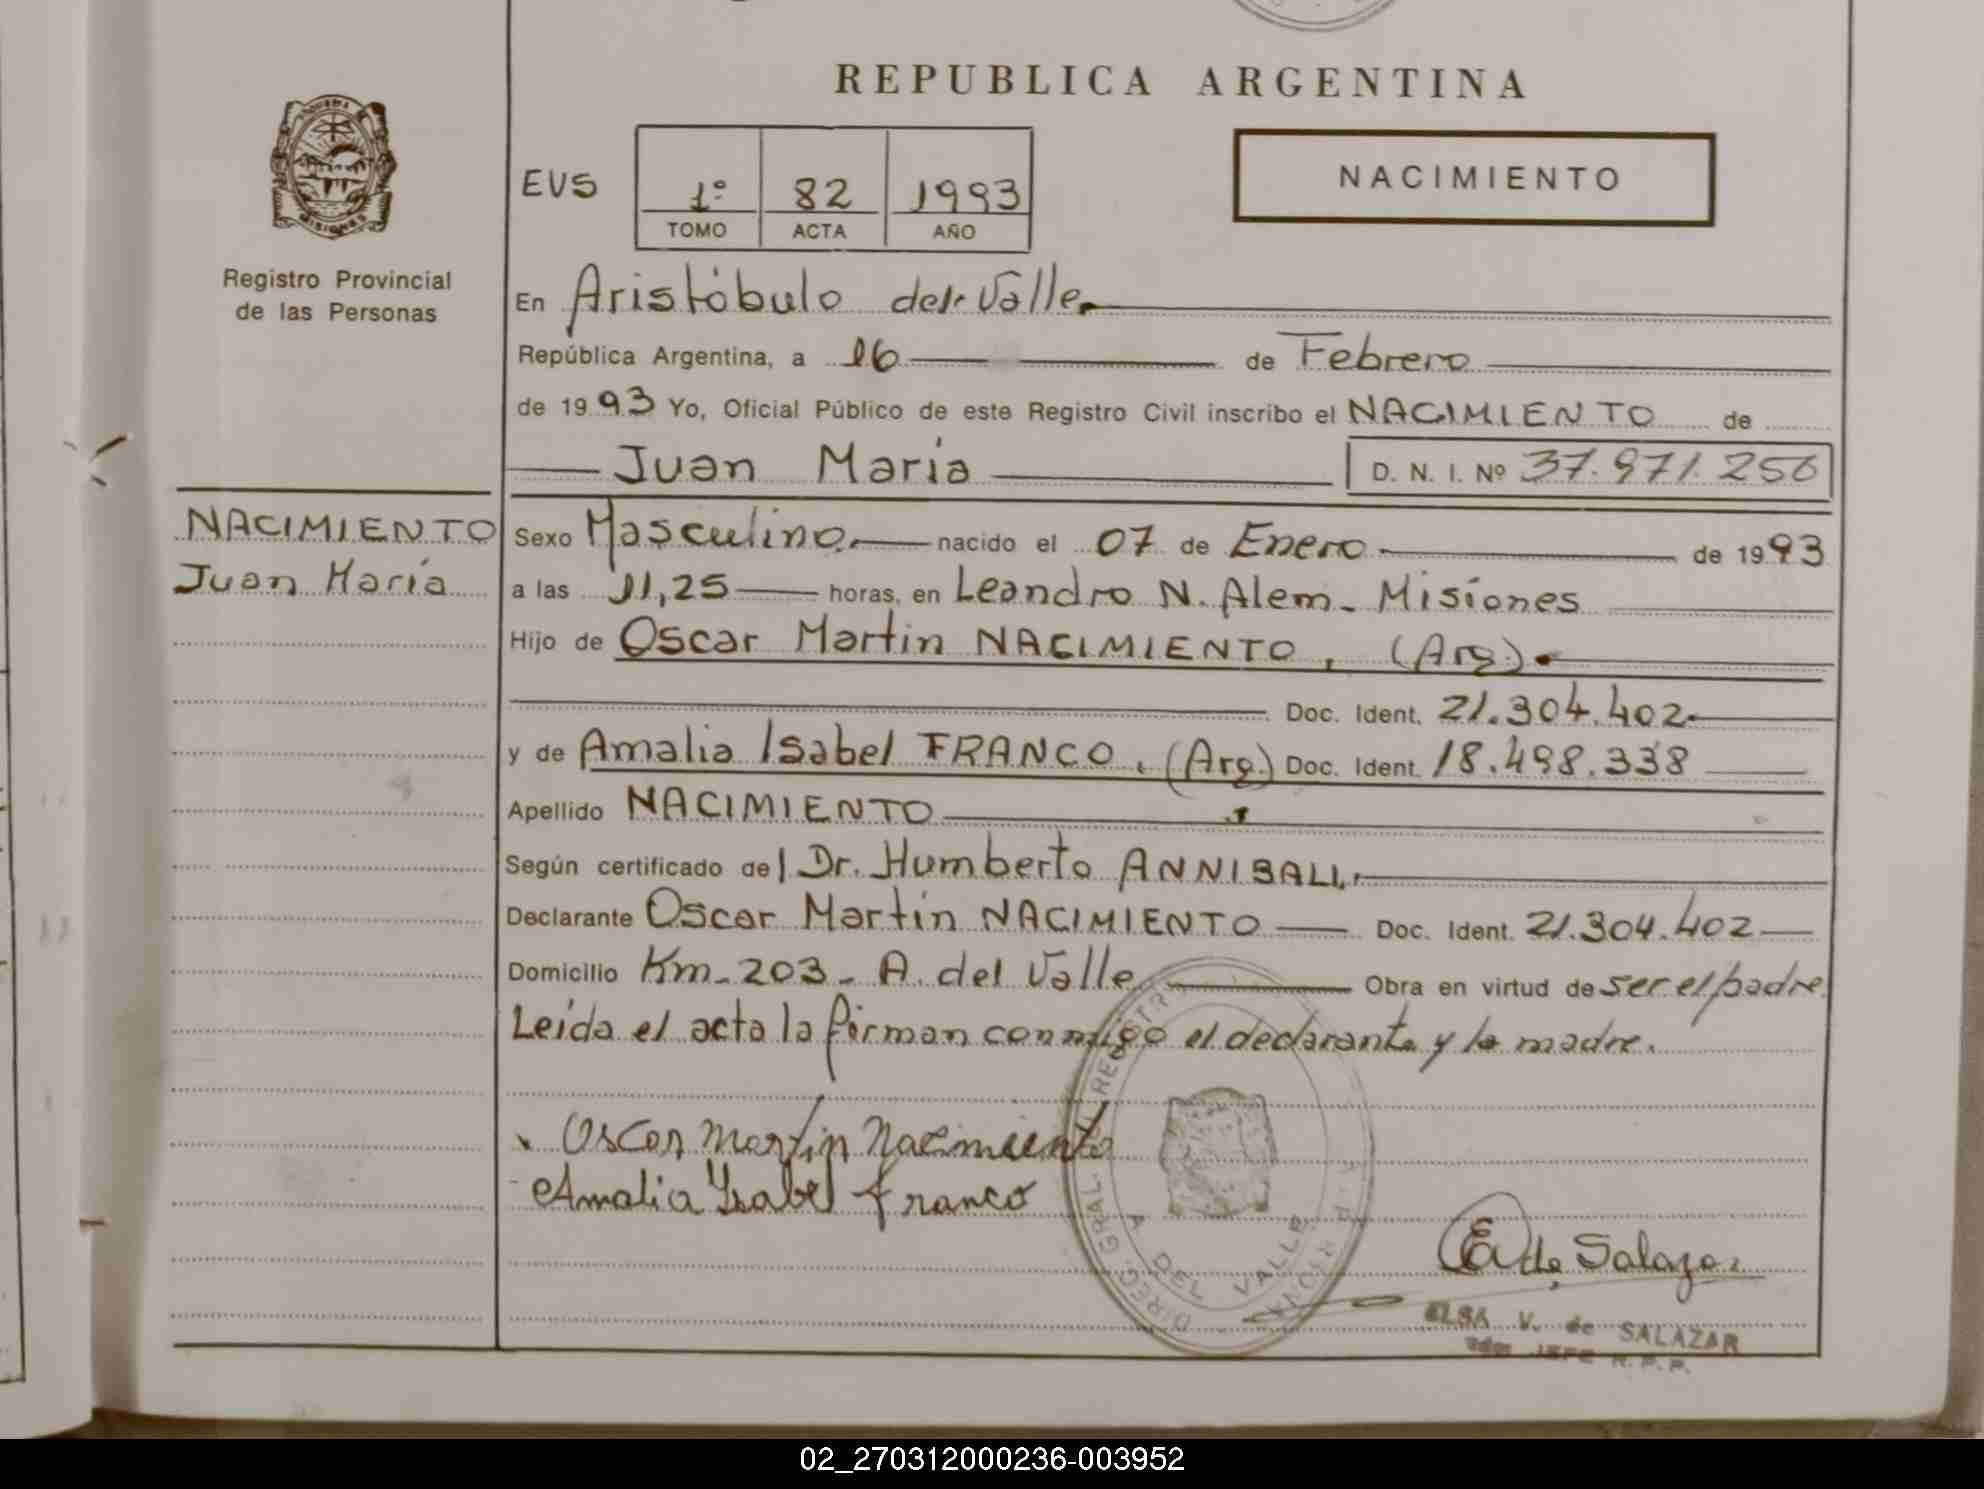 REPUBLICA ARGENTINA
EVS
1º 82 1993
TOMO ACTA AÑO
NACIMIENTO
Registro Provincial
de las Personas
En Aristóbulo del Valle
República Argentina, a 16 de Febrero
de 1993 Yo, Oficial Público de este Registro Civil inscribo el NACIMIENTO de
Juan María D. N. I. Nº 37.971.256
NACIMIENTO
Juan María
Sexo Masculino nacido el 07 de Enero de 1993
a las 11,25 horas, en Leandro N. Alem - Misiones
Hijo de Oscar Martin NACIMIENTO, (Arg.)
Doc. Ident. 21.304.402
y de Amalia Isabel FRANCO, (Arg.) Doc. Ident. 18.498.338
Apellido NACIMIENTO
Según certificado del Dr. Humberto ANNIBALI
Declarante Oscar Martín NACIMIENTO Doc. Ident. 21.304.402
Domicilio Km - 203 - A. del Valle Obra en virtud de ser el padre.
Leída el acta la firman conmigo el declarante y la madre.
Oscar Martin Nacimiento
Amalia Ysabel franco
DIREC. GRAL. DEL REGISTRO
A DEL VALLE
E V de Salazar
ELSA V. de SALAZAR
JEFE R. P. P.
02_270312000236-003952